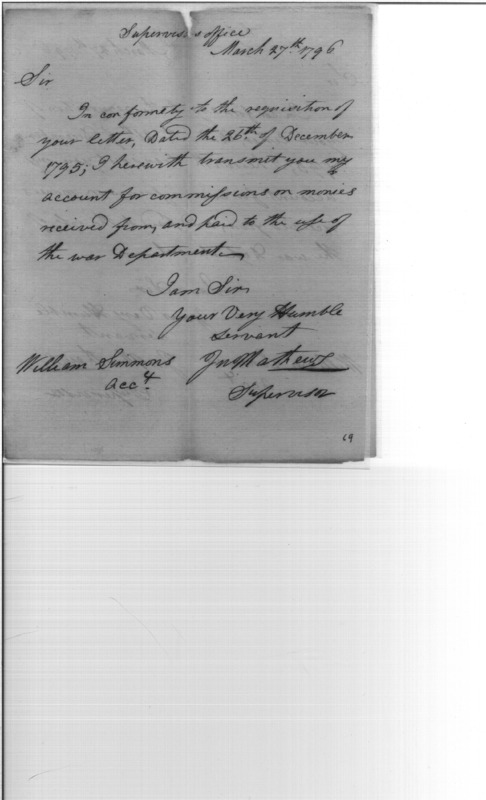 Supervisors office
March 27th 1796
Sir
In conformety to the requisition of
your letter, Dated the 26th of December
1795; I herewith transmit you my
account for commissions on monies
received from, and paid to the use of
the war Department.
I am Sir
Your Very Humble
Servant
William Simmons
Acct.
Jno Mathews
Supervisor
69